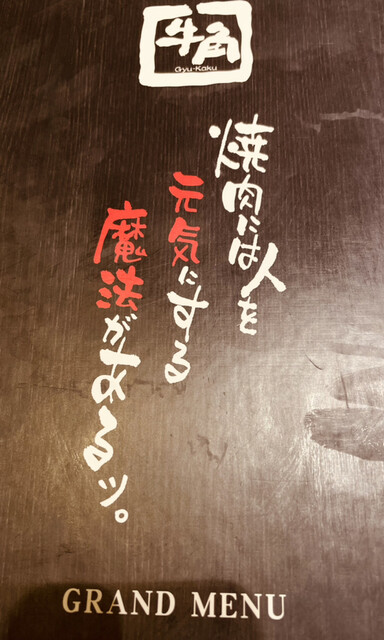 牛角
Gyu-Kaku
焼肉には人を
元気にする
魔法があるッ。
GRAND MENU